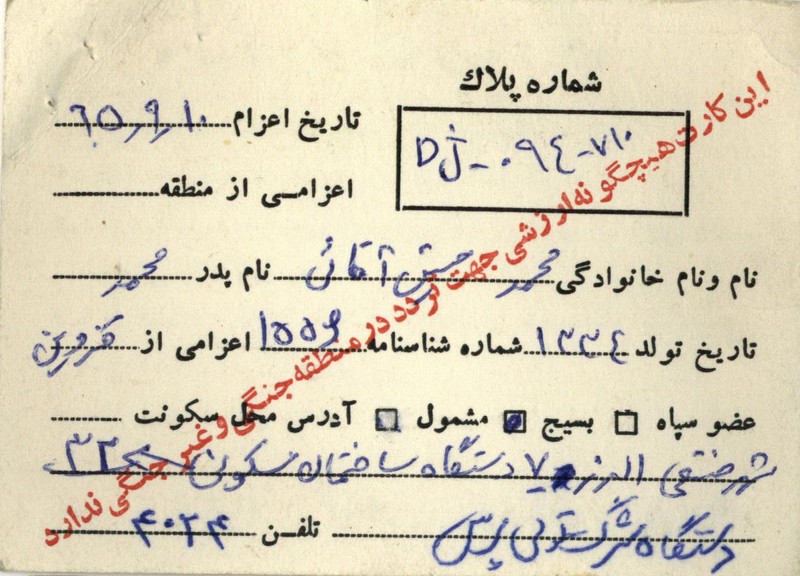 شماره پلاک
تاریخ اعزام ۶۵٫۹٫۱۰
Dژ-۰۹۴-۷۱۰
اعزامی از منطقه
نام ونام خانوادگی محمد حسین آقائی نام پدر محمد
تاریخ تولد ۱۳۳٤ شماره شناسنامه ۱۵۵۶ اعزامی از قزوین
عضو سپاه بسیج مشمول آدرس محل سکونت
شهر صنعتی البرز دستگاه ساختمان مسکونی ۳۳
دستگاه پرس تلفن ۴۰۲۴
این کارت هیچگونه ارزشی جهت تردد در منطقه جنگی و غیر جنگی ندارد